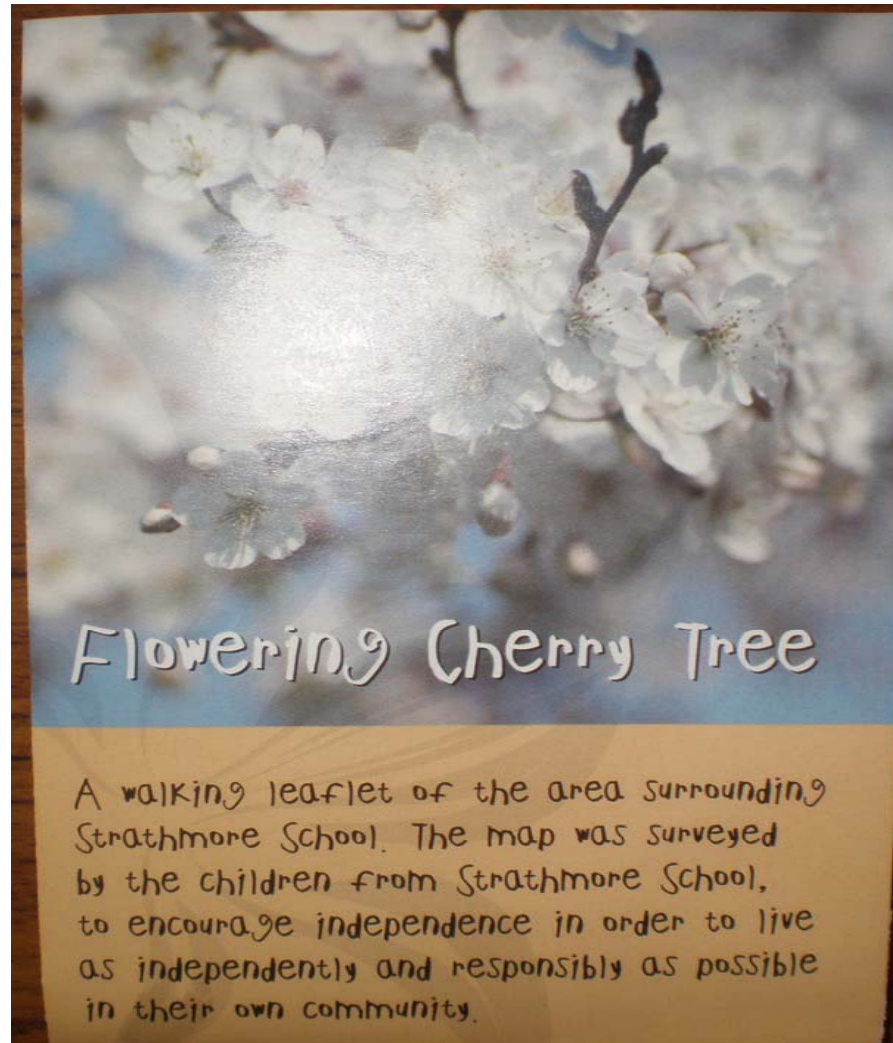 Flowering Cherry Tree
A walking leaflet of the area surrounding
Strathmore School. The map was surveyed
by the children from Strathmore School,
to encourage independence in order to live
as independently and responsibly as possible
in their own community.